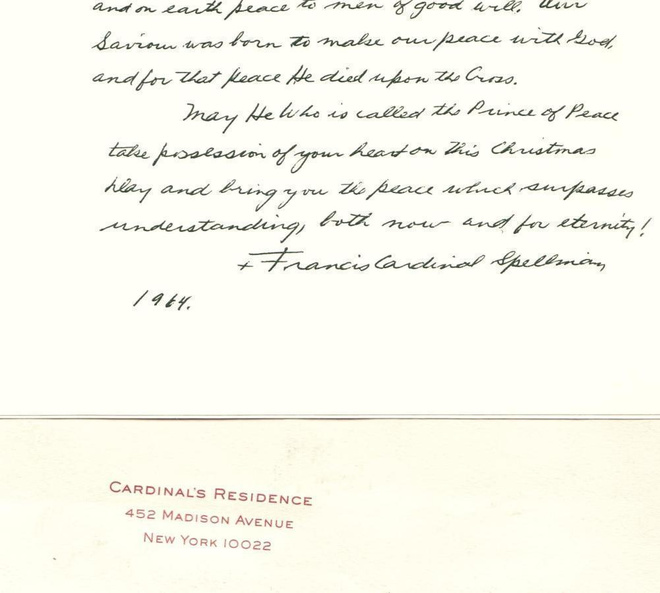 and on earth peace to men of good will. Our
Saviour was born to make our peace with God,
and for that peace He died upon the Cross.
May He Who is called the Prince of Peace
take possession of your heart on this Christmas
Day and bring you the peace which surpasses
understanding, both now and for eternity!
+ Francis Cardinal Spellman
1964.
CARDINAL'S RESIDENCE
452 MADISON AVENUE
NEW YORK 10022